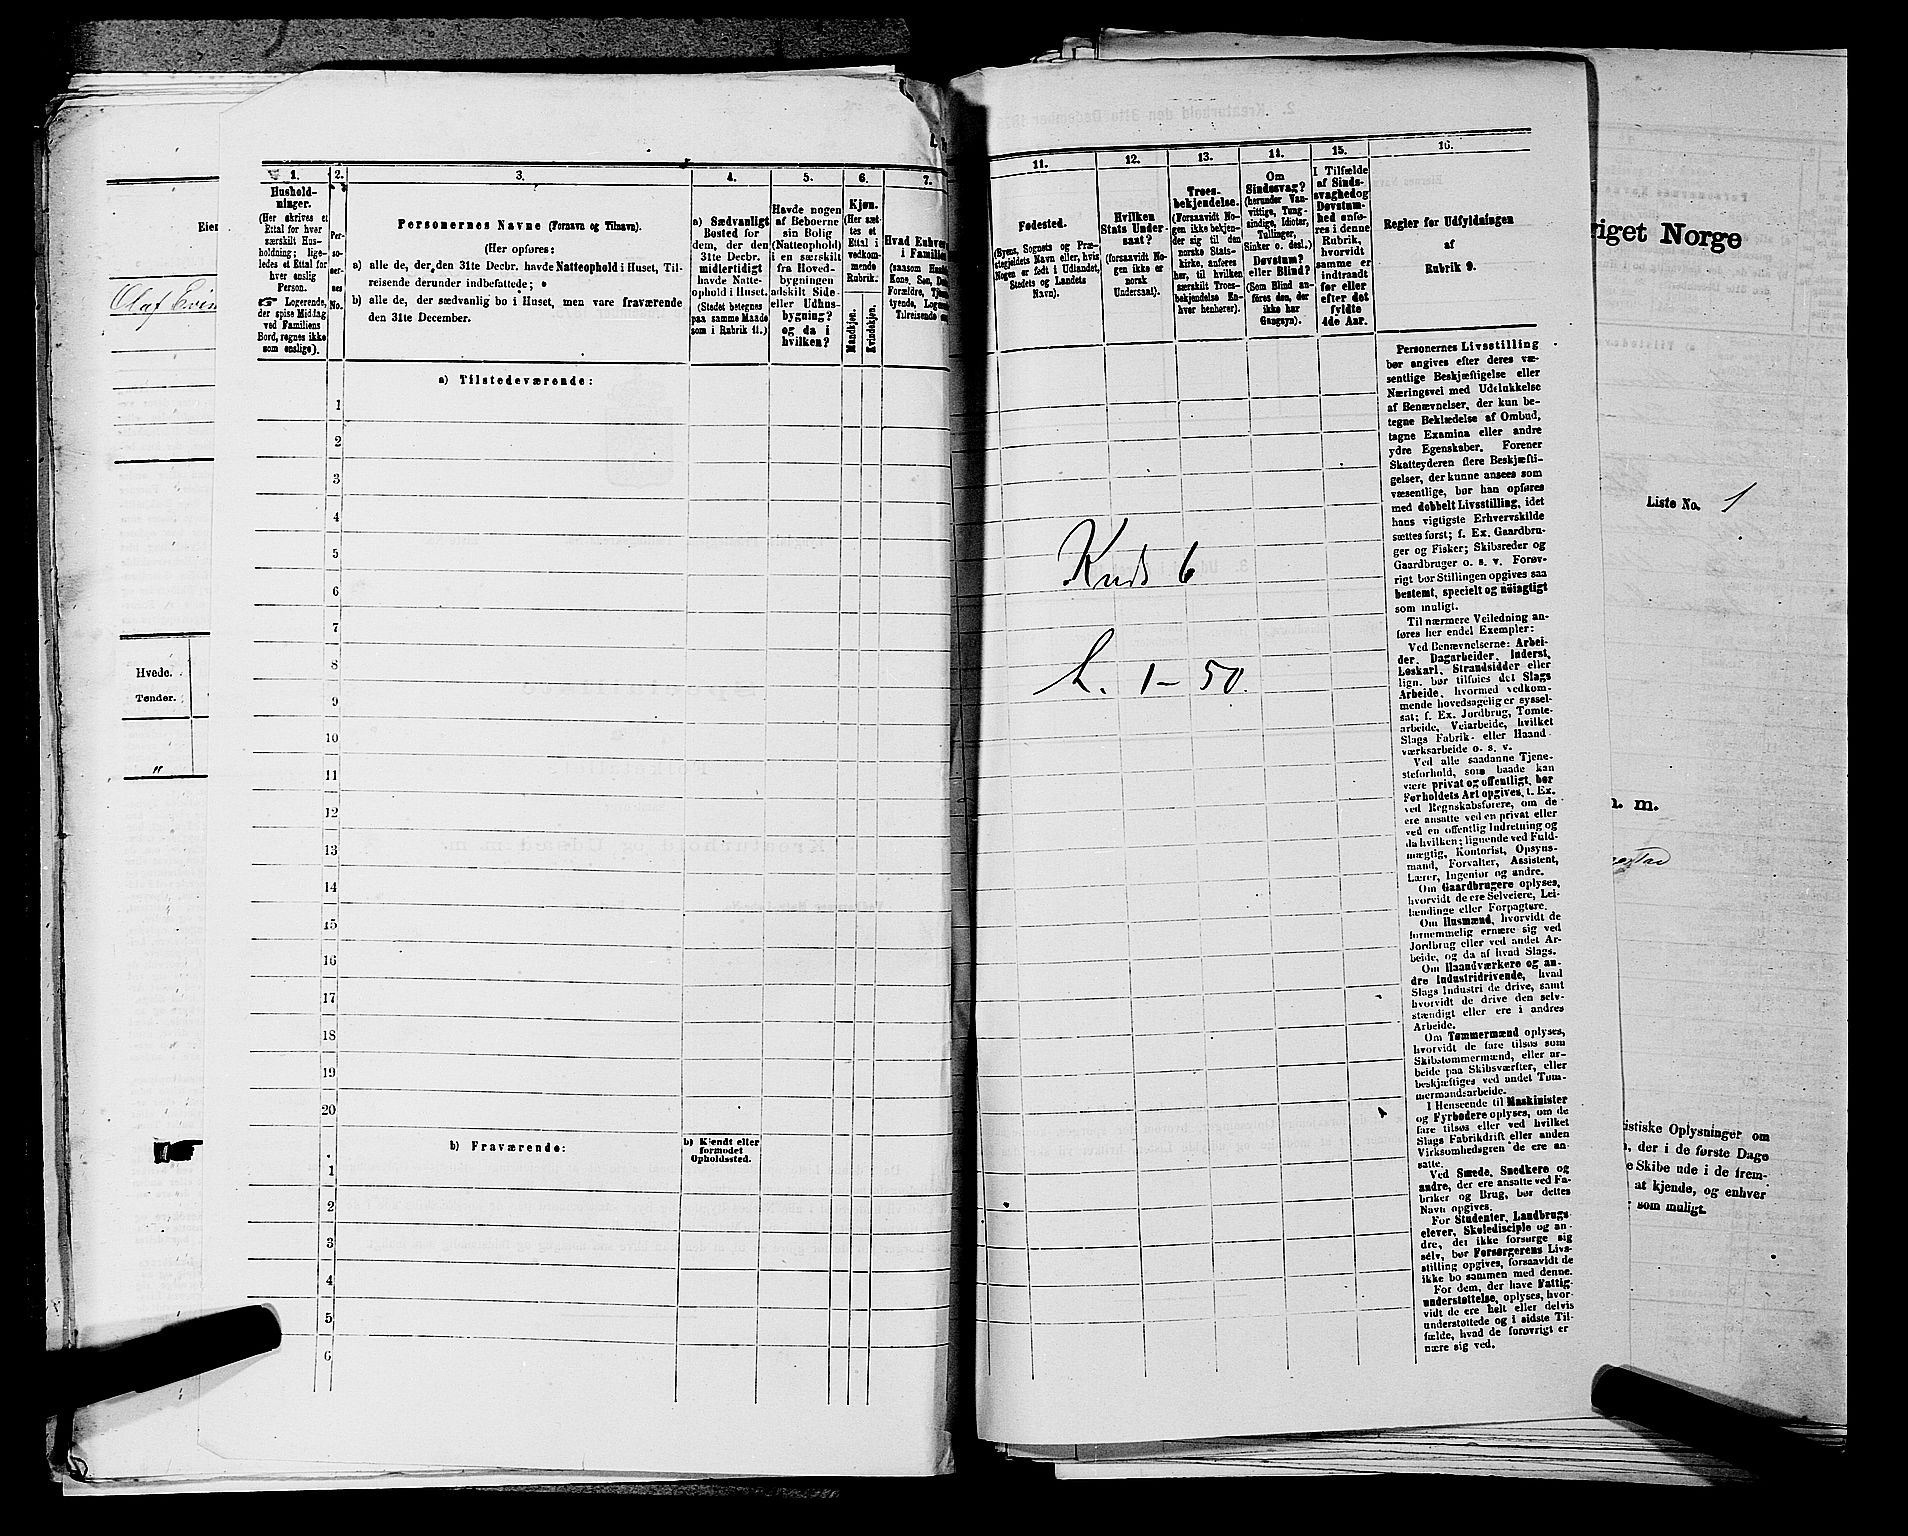 Eier
Olaf Evin
Hvede.
Tønder.
"
1.
Hushold-
ninger.
(Her skrives et
Ettal for hver
særskilt Hus-
holdning; lige-
ledes et Ettal for
hver enslig
Person.
☞ Logerende,
der spise Middag
ved Familiens
Bord, regnes ikke
som enslige).
2.
Per-
so-
ner-
nes
No.
3.
Personernes Navne (Fornavn og Tilnavn).
(Her opføres:
a) alle de, der den 31te Decbr. havde Natteophold i Huset, Til-
reisende derunder indbefattede;
b) alle de, der sædvanlig bo i Huset, men vare fraværende
den 31te December.
4.
a) Sædvanligt
Bosted for
dem, der den
31te Decbr.
midlertidigt
havde Natte-
ophold i Huset.
(Stedet betegnes
paa samme Maade
som i Rubrik 11.)
5.
Havde nogen
af Beboerne
sin Bolig
(Natteophold)
i en særskilt
fra Hoved-
bygningen
adskilt Side-
eller Udhus-
bygning?
og da i
hvilken?
6.
Kjøn.
(Her sæt-
tes et
Ettal i
vedkom-
mende
Rubrik.
Mandkjøn.
Kvindekjøn.
7.
Hvad Enhver
i Familien
(saasom Hus
Kone, Søn, Dat
Forældre, Tjen
tyende, Loger
Tilreisende
a) Tilstedeværende:
1
2
3
4
5
6
7
8
9
10
11
12
13
14
15
16
17
18
19
20
b) Fraværende:
b) Kjendt eller
formodet
Opholdssted.
1
2
3
4
5
6
11.
Fødested.
(Byens, Sognets og Præ-
stegjeldets Navn eller, hvis
Nogen er født i Udlandet,
Stedets og Landets
Navn).
12.
Hvilken
Stats Under-
saat?
(forsaavidt No-
gen ikke er
norsk
Undersaat).
13.
Troes-
bekjendelse.
(Forsaavidt No-
gen ikke bekjen-
der sig til den
norske Stats-
kirke, anføres
her, til hvilken
særskilt Troes-
bekjendelse En-
hver henhører).
14.
Om
Sindssvag?
(herunder Van-
vittige, Tung-
sindige, Idioter,
Tullinger,
Sinker o. desl.)
Døvstum?
eller Blind?
(Som Blind an-
føres den, der
ikke har
Gangsyn).
15.
I Tilfælde
af Sinds-
svaghed og
Døvstum-
hed anfø-
res i denne
Rubrik,
hvorvidt
samme er
indtraadt
før eller
efter det
fyldte
4de Aar.
16.
Regler for Udfyldningen
af
Rubrik 9.
Knds 6
L. 1-50.
Personernes Livsstilling
bør angives efter deres væ-
sentlige Beskjæftigelse eller
Næringsvei med Udelukkelse
af Benævnelser, der kun be-
tegne Beklædelse af Ombud,
tagne Examina eller andre
ydre Egenskaber. Forener
Skatteyderen flere Beskjæfti-
gelser, der kunne ansees som
væsentlige, bør han opføres
med dobbelt Livsstilling, idet
hans vigtigste Erhvervskilde
sættes først; f. Ex. Gaardbru-
ger og Fisker; Skibsreder og
Gaardbruger o. s. v. Forøv-
rigt bør Stillingen opgives saa
bestemt, specielt og nøiagtigt
som muligt.
Til nærmere Veiledning an-
føres her endel Exempler:
Ved Benævnelserne: Arbei-
der, Dagarbeider, Inderst,
Løskarl, Strandsidder eller
lign. bør tilføies det Slags
Arbeide, hvormed vedkom-
mende hovedsagelig er syssel-
sat; f. Ex. Jordbrug, Tomte-
arbeide, Veiarbeide, hvilket
Slags Fabrik- eller Haand-
værksarbeide o. s. v.
Ved alle saadanne Tjene-
steforhold, som baade kan
være privat og offentligt, bør
Forholdets Art opgives, t. Ex.
ved Regnskabsførere, om de
ere ansatte ved en privat eller
ved en offentlig Indretning og
da hvilken; lignende ved Fuld-
mægtig, Kontorist, Opsyns-
mand, Forvalter, Assistent,
Lærer, Ingeniør og andre.
Om Gaardbrugere oplyses,
hvorvidt de ere Selveiere, Lei-
lændinge eller Forpagtere.
Om Husmænd, hvorvidt de
fornemmelig ernære sig ved
Jordbrug eller ved andet Ar-
beide, og da af hvad Slags.
Om Haandværkere og an-
dre Industridrivende, hvad
Slags Industri de drive, samt
hvorvidt de drive den selv-
stændigt eller ere i andres
Arbeide.
Om Tømmermænd oplyses,
hvorvidt de fare tilsøs som
Skibstømmermænd, eller ar-
beide paa Skibsværfter, eller
beskjæftiges ved andet Tøm-
mermandsarbeide.
I Henseende til Maskinister
og Fyrbødere oplyses, om de
fare tilsøs eller ved hvilket
Slags Fabrikdrift eller anden
Virksomhedsgren de ere an-
satte.
Ved Smede, Snedkere og
andre, der ere ansatte ved Fa-
briker og Brug, bør dettes
Navn opgives.
For Studenter, Landbrugs-
elever, Skoledisciple og an-
dre, der ikke forsørge sig
selv, bør Forsørgerens Livs-
stilling opgives, forsaavidt de
ikke bo sammen med denne.
For dem, der have Fattig-
understøttelse, oplyses, hvor-
vidt de ere helt eller delvis
understøttede og i sidste Til-
fælde, hvad de forøvrigt er
nære sig ved.
riget Norge
Liste No. 1
n. m.
istiske Oplysninger om
n, der i de første Dage
e Skibe ude i de frem-
at kjende, og enhver
som muligt.